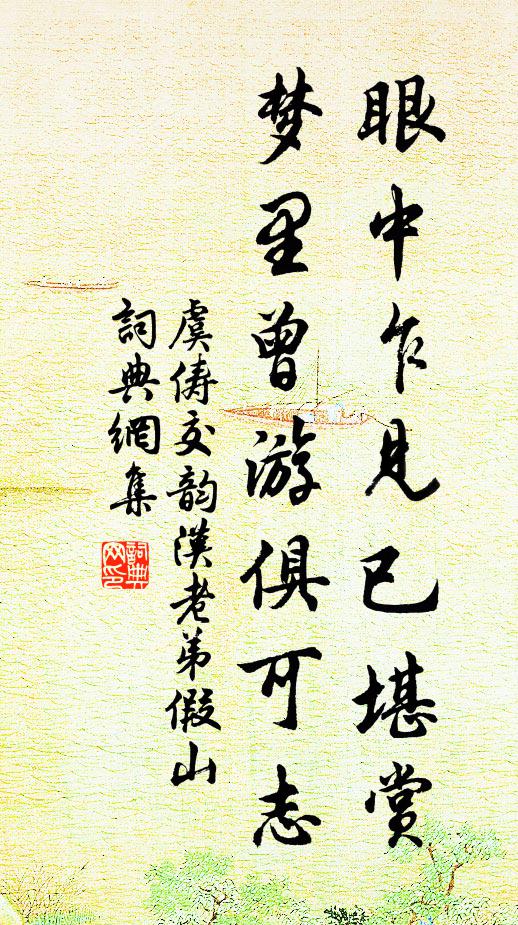 眼中乍见已堪赏
梦里曾游俱可志
虞俦交韵漢老弟假山
詞典網集
詞典网印